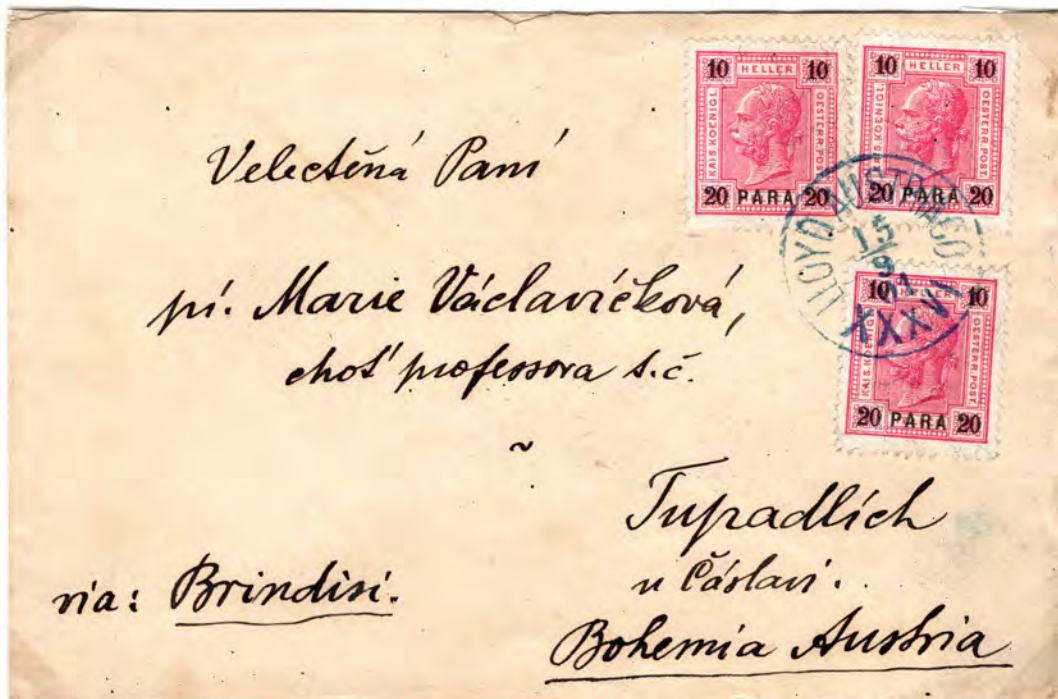 10 HELLER 10
KAIS. KOENIGL.
OESTERR. POST.
20 PARA 20
10 HELLER 10
KAIS. KOENIGL.
OESTERR. POST.
20 PARA 20
LLOYD AUSTRIACO
15
9
01
XXXVI
10 10
KAIS. KOENIGL.
OESTERR. POST.
20 PARA 20
Velectěná Paní
pí. Marie Václavíčková,
choť professora s.č.
~
Tupadlích
u Čáslavi.
via: Brindisi.
Bohemia Austria